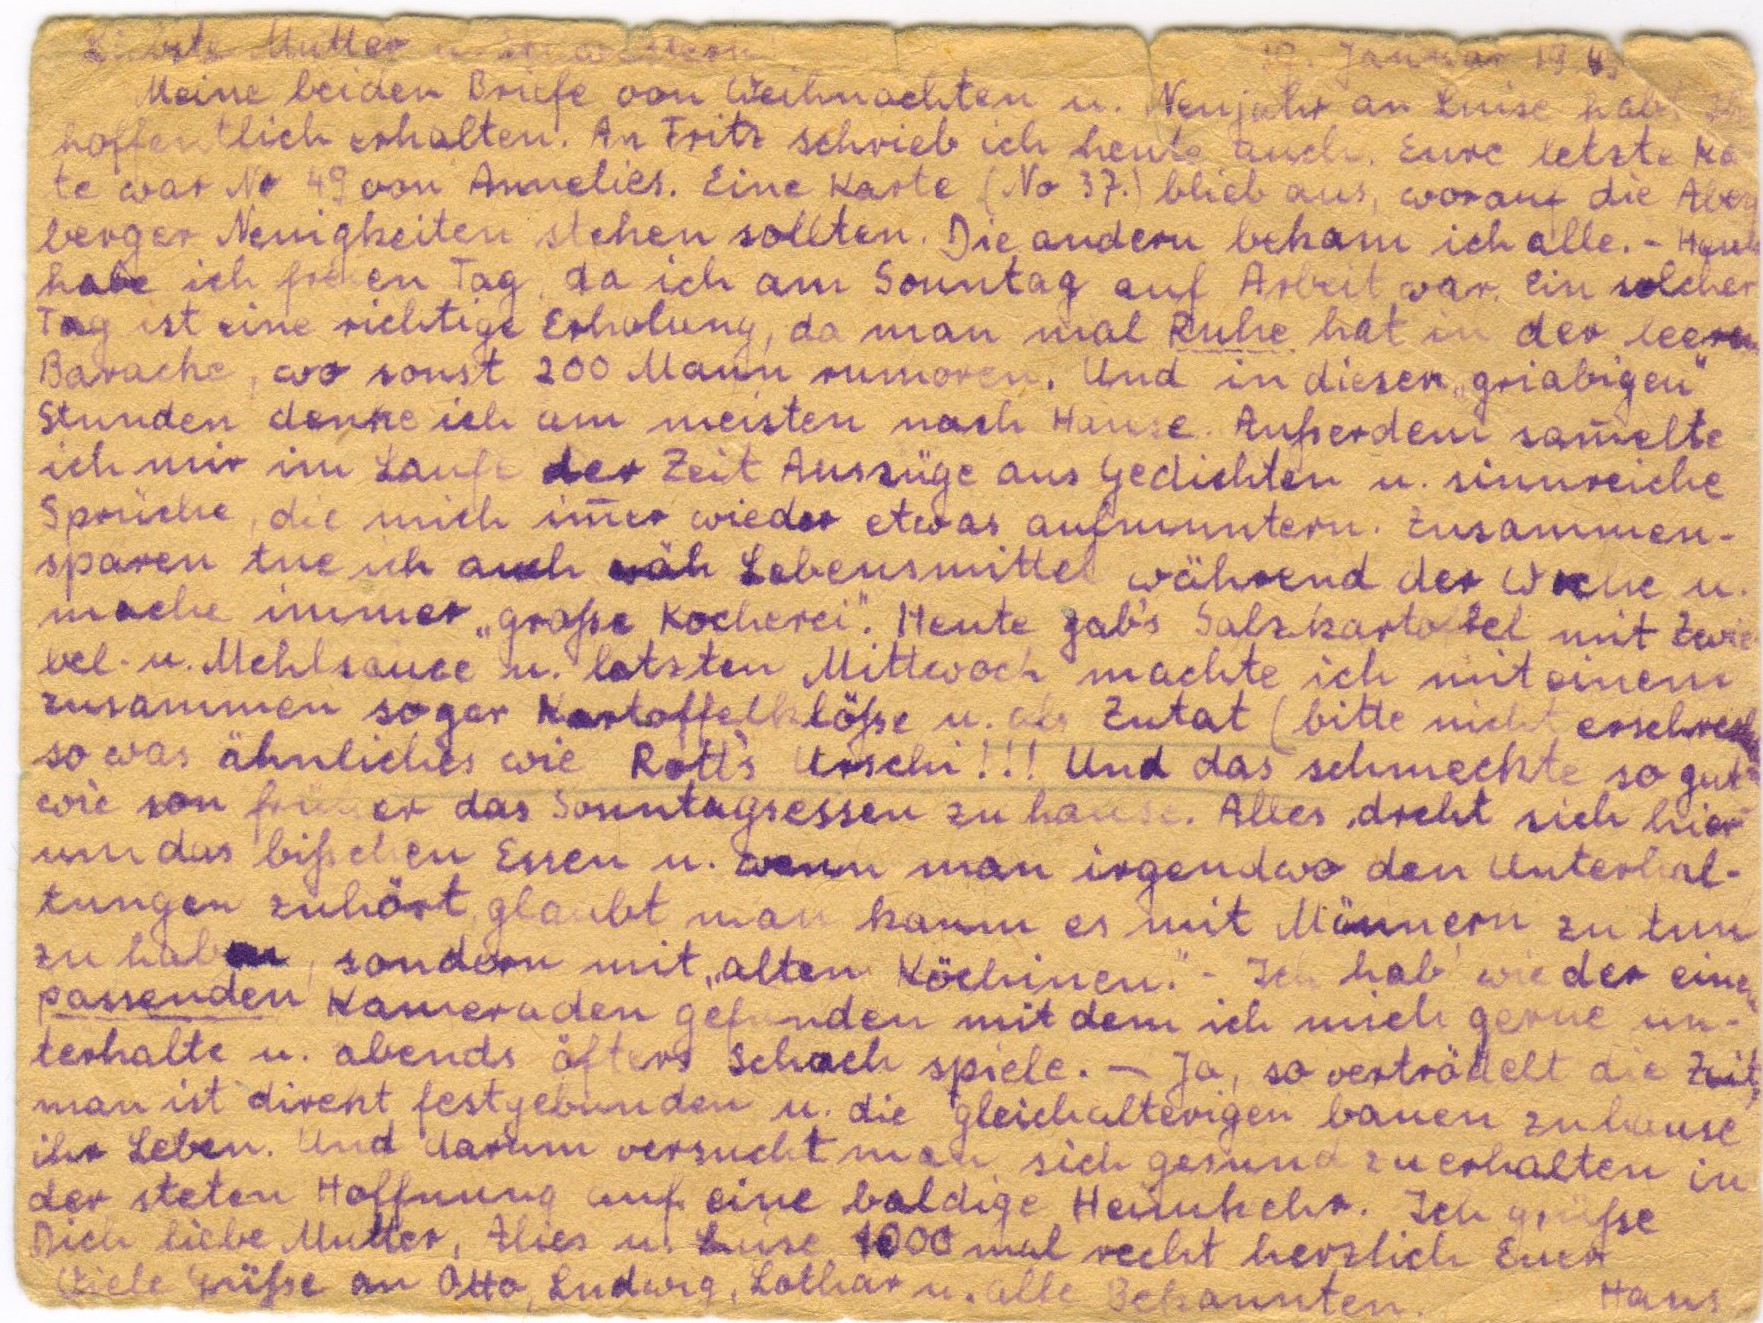 Liebste Mutter u. Schwestern! 19. Januar 194
Meine beiden Briefe von Weihnachten u. Neujahr an Luise habt Ihr
hoffentlich erhalten. An Fritz schrieb ich heute auch. Eure letzte Ka
te war No 49 von Annelies. Eine Karte (No 37.) blieb aus, worauf die Abens
berger Neuigkeiten stehen sollten. Die andern bekam ich alle. - Heute
habe ich freien Tag, da ich am Sonntag auf Arbeit war. Ein solcher
Tag ist eine richtige Erholung, da man mal Ruhe hat in der leeren
Baracke, wo sonst 200 Mann rumoren. Und in diesen „griabigen"
Stunden denke ich am meisten nach Hause. Außerdem sam̅elte
ich mir im Laufe der Zeit Auszüge aus Gedichten u. sinnreiche
Sprüche, die mich im̅er wieder etwas aufmuntern. Zusammen-
sparen tue ich auch wäh Lebensmittel während der Woche u.
mache immer „große Kocherei". Heute gab's Salzkartoffel mit Zwie
bel- u. Mehlsauce u. letzten Mittwoch machte ich mit einem
zusammen sogar Kartoffelklöße u. als Zutat (bitte nicht erschreck
so was ähnliches wie Rott's Urschi!!! Und das schmeckte so gut
wie von früher das Sonntagsessen zu hause. Alles dreht sich hier
um das bißchen Essen u. wenn man irgendwo den Unterhal-
tungen zuhört, glaubt man kaum es mit Männern zu tun
zu haben, sondern mit „alten Köchinen." - Ich hab' wieder einen
passenden Kameraden gefunden mit dem ich mich gerne un-
terhalte u. abends öfters Schach spiele. - Ja, so verträdelt die Zeit,
man ist direkt festgebunden u. die gleichalterigen bauen zuhause
ihr Leben. Und darum versucht man sich gesund zu erhalten in
der steten Hoffnung auf eine baldige Heimkehr. Ich grüße
Dich liebe Mutter, Alies u. Luise 1000 mal recht herzlich Euer
Viele Grüße an Otto, Ludwig, Lothar u. alle Bekannten. Hans